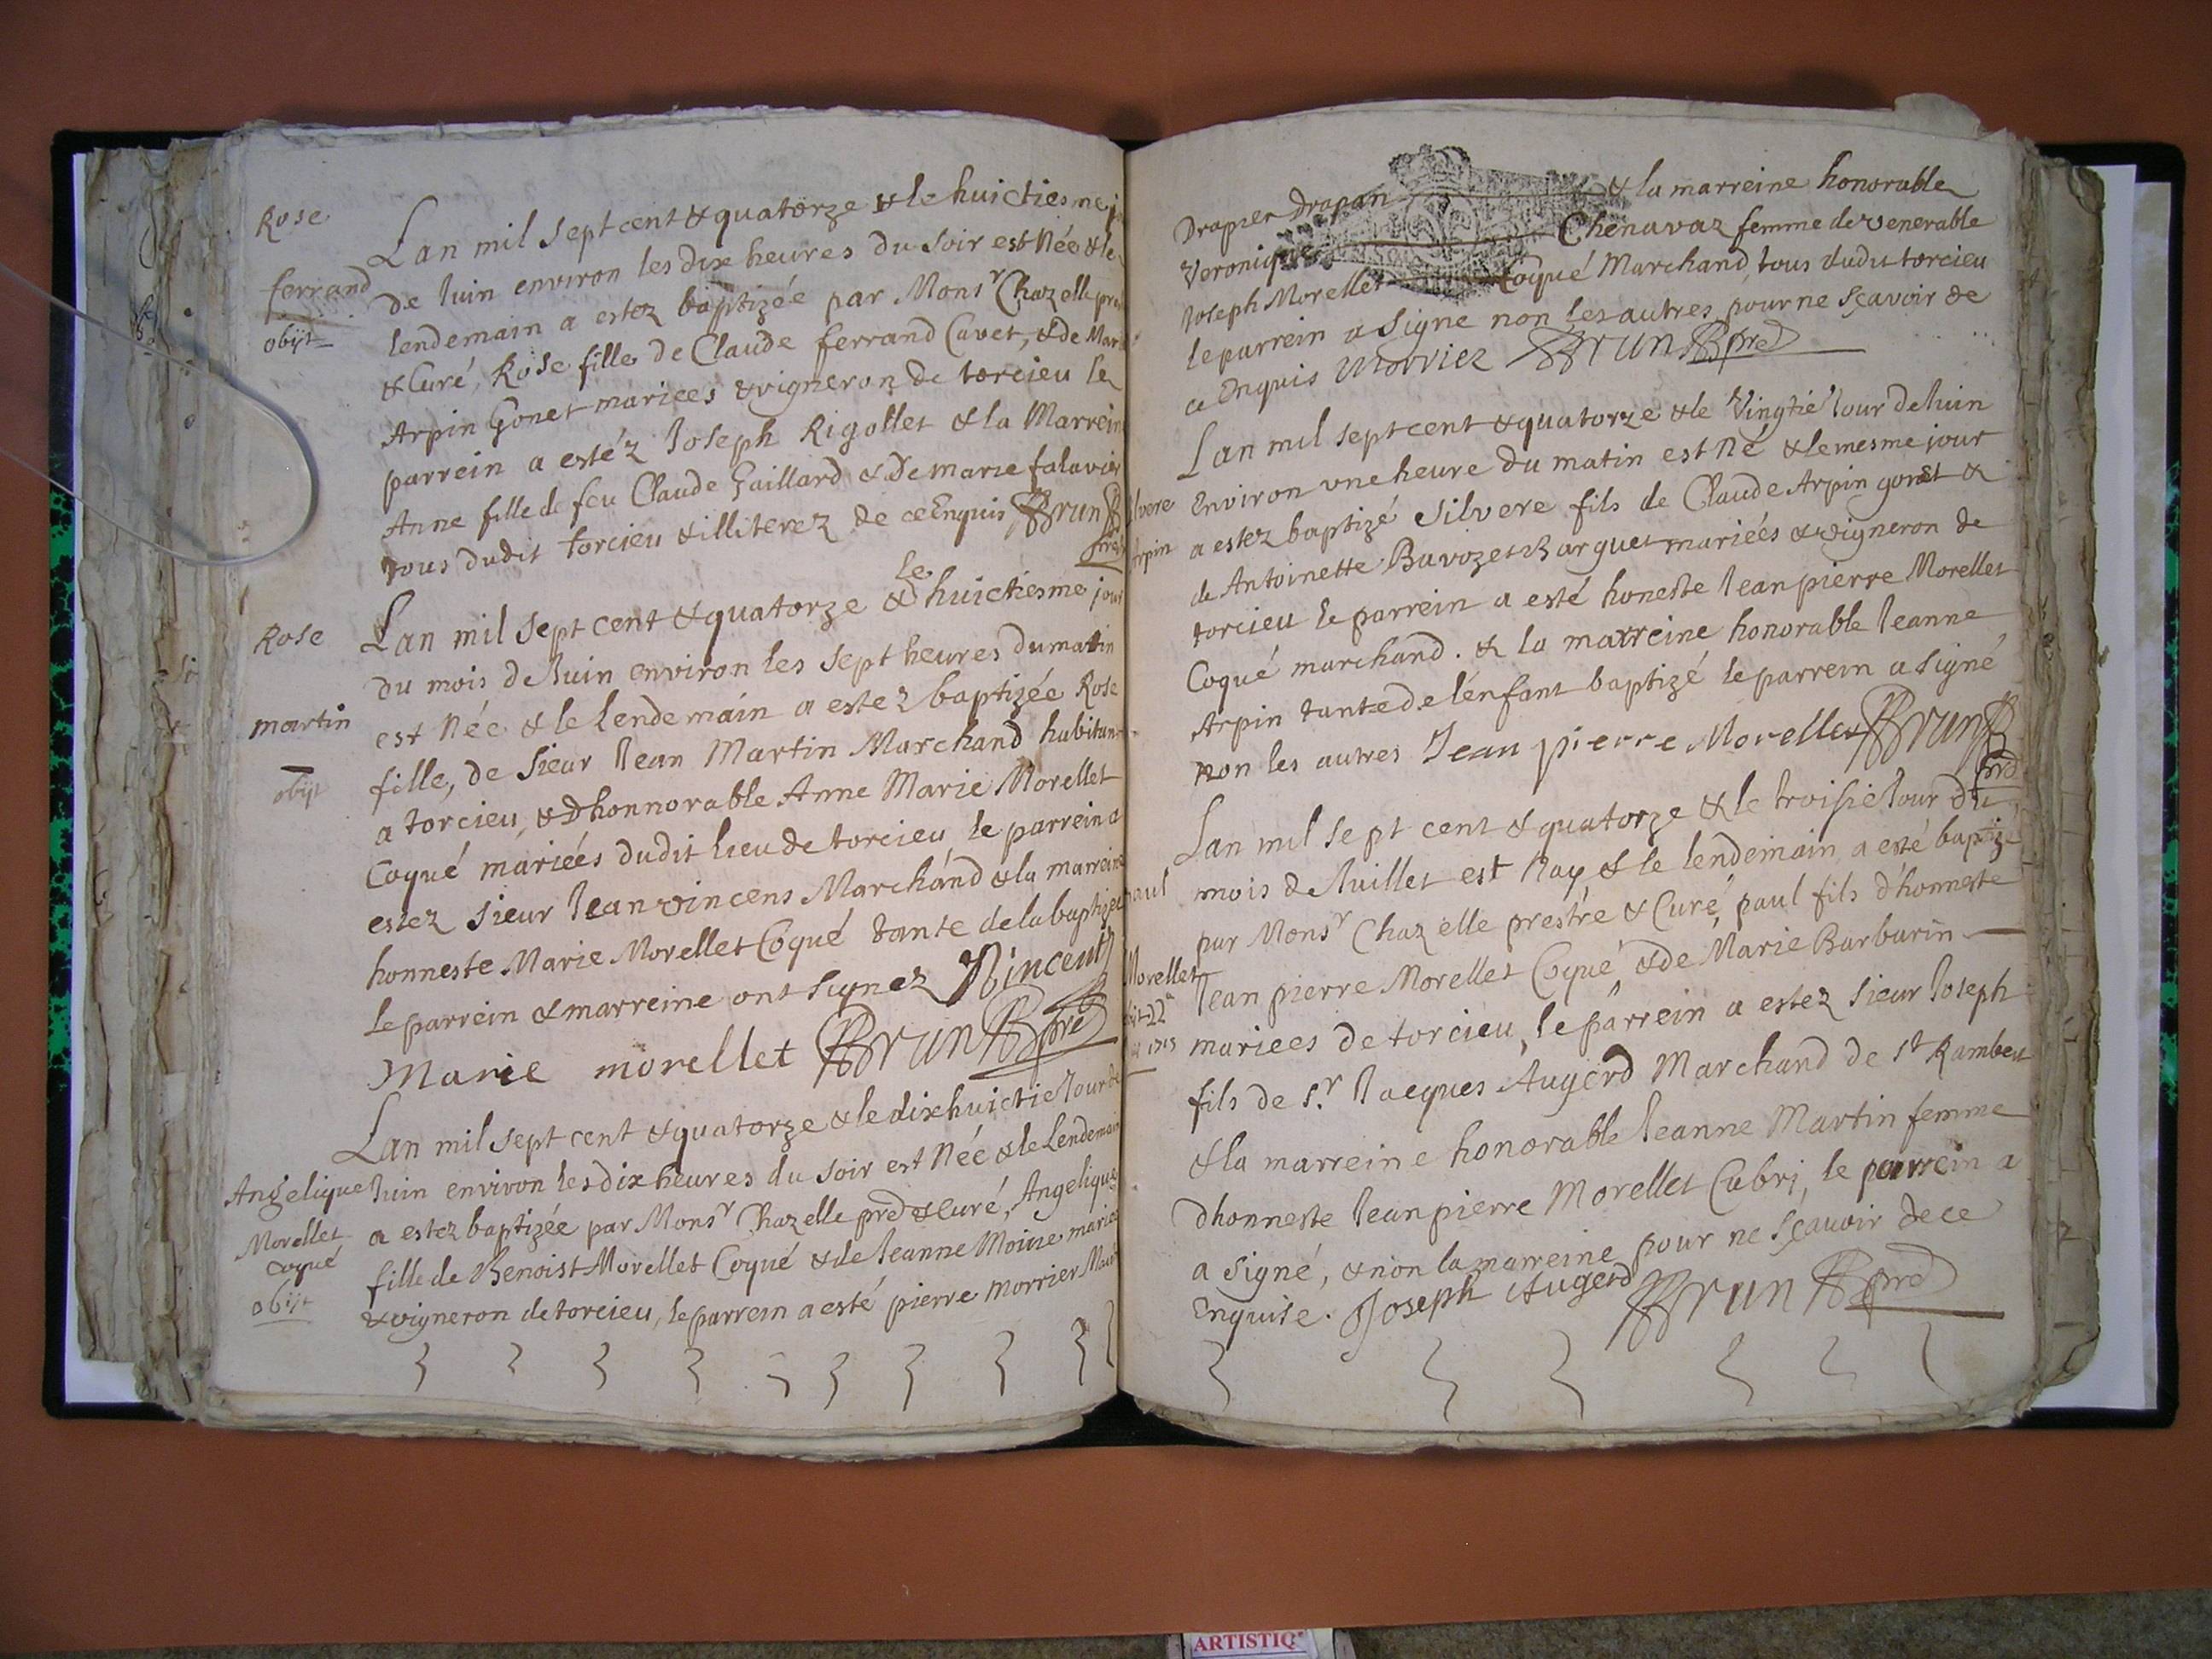 Rose
ferrand
obijt
Lan mil sept cent & quatorze & le huictiesme
de Juin environ les dix heures du soir est Née & le
lendemain a estez baptizée par Monsr Chazelle
& Curé, Rose fille de Claude ferrand Cavet, & de
Arpin Gonet mariees & vigneron de torcieu le
parrein a estéz Joseph Rigollet & la Marrein
Anne fille de feu Claude Gaillard & de marie falavier
tous dudit torcieu & illiterez de ce Enquis Brun
pre
Rose
martin
obijt
le
Lan mil sept cent & quatorze & huictiesme jour
du mois de Juin environ les sept heures du matin
est Née & le lendemain a estez baptizée Rose
fille, de sieur Jean Martin Marchand habitant
a torcieu, & dhonnorable Anne Marie Morellet
Coqué mariées dudit lieu de torcieu, le parrein a
estez sieur Jean vincens Marchand & la marreine
honneste Marie Morellet Coqué tante de la baptizee
le parrein & marreine ont signez Vincent
Marie morellet Brun pre
Angelique
Morellet
coqué
obijt
Lan mil sept cent & quatorze & le dixhuictie Jour de
Juin environ les dix heures du soir est Née & le Lendemain
a estez baptizée par Monsr Chazelle pre & Curé, Angelique
fille de Benoist Morellet Coqué & de Jeanne Moine mariees
& vigneron de torcieu, le parrein a esté pierre morrier
Drapier Drapan & la marreine honorable
Veronique Chenavaz femme de venerable
Joseph Morellet Coqué Marchand, tous dudit torcieu
le parrein a signe non les autres pour ne sçavoir de
ce Enquis morriez Brun pre
Arpin
Lan mil sept cent & quatorze & le Vingtie Jour de Juin
Environ une heure du matin est Né & le mesme jour
a estez baptizé Silvere fils de Claude Arpin gonet &
de Antoinette Bavozet Barguet mariées & vigneron de
torcieu le parrein a esté honeste Jean pierre Morellet
Coqué marchand. & la marreine honorable Jeanne
Arpin tante de lenfant baptizé le parrein a signé
non les autres Jean pierre Morellet Brun
pre
paul
Morellet
1715
Lan mil sept cent & quatorze & le troisie Jour du
mois de Juillet est Nay & le lendemain a esté baptizé
par Monsr Chazelle prestre & Curé, paul fils d'honneste
Jean pierre Morellet Coqué & de Marie Barbarin
mariees de torcieu, le parrein a estez sieur Joseph
fils de Sr. Jacques Augerd Marchand de St Rambert
& la marreine honorable Jeanne Martin femme
dhonneste Jean pierre Morellet Cabri, le parrein a
a signé, & non la marreine pour ne sçavoir de ce
Enquise. Joseph Augerd Brun pre
ARTISTIQ